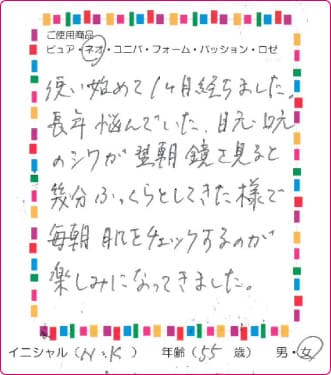 ご使用商品
ピュア・ネオ・ユニバ・フォーム・パッション・ロゼ
使い始めて1ヶ月経ちました。
長年悩んでいた、目元・口元
のシワが翌朝鏡を見ると
幾分ふっくらとしてきた様で
毎朝肌をチェックするのが
楽しみになってきました。
イニシャル(N・K) 年齢(55歳) 男・女